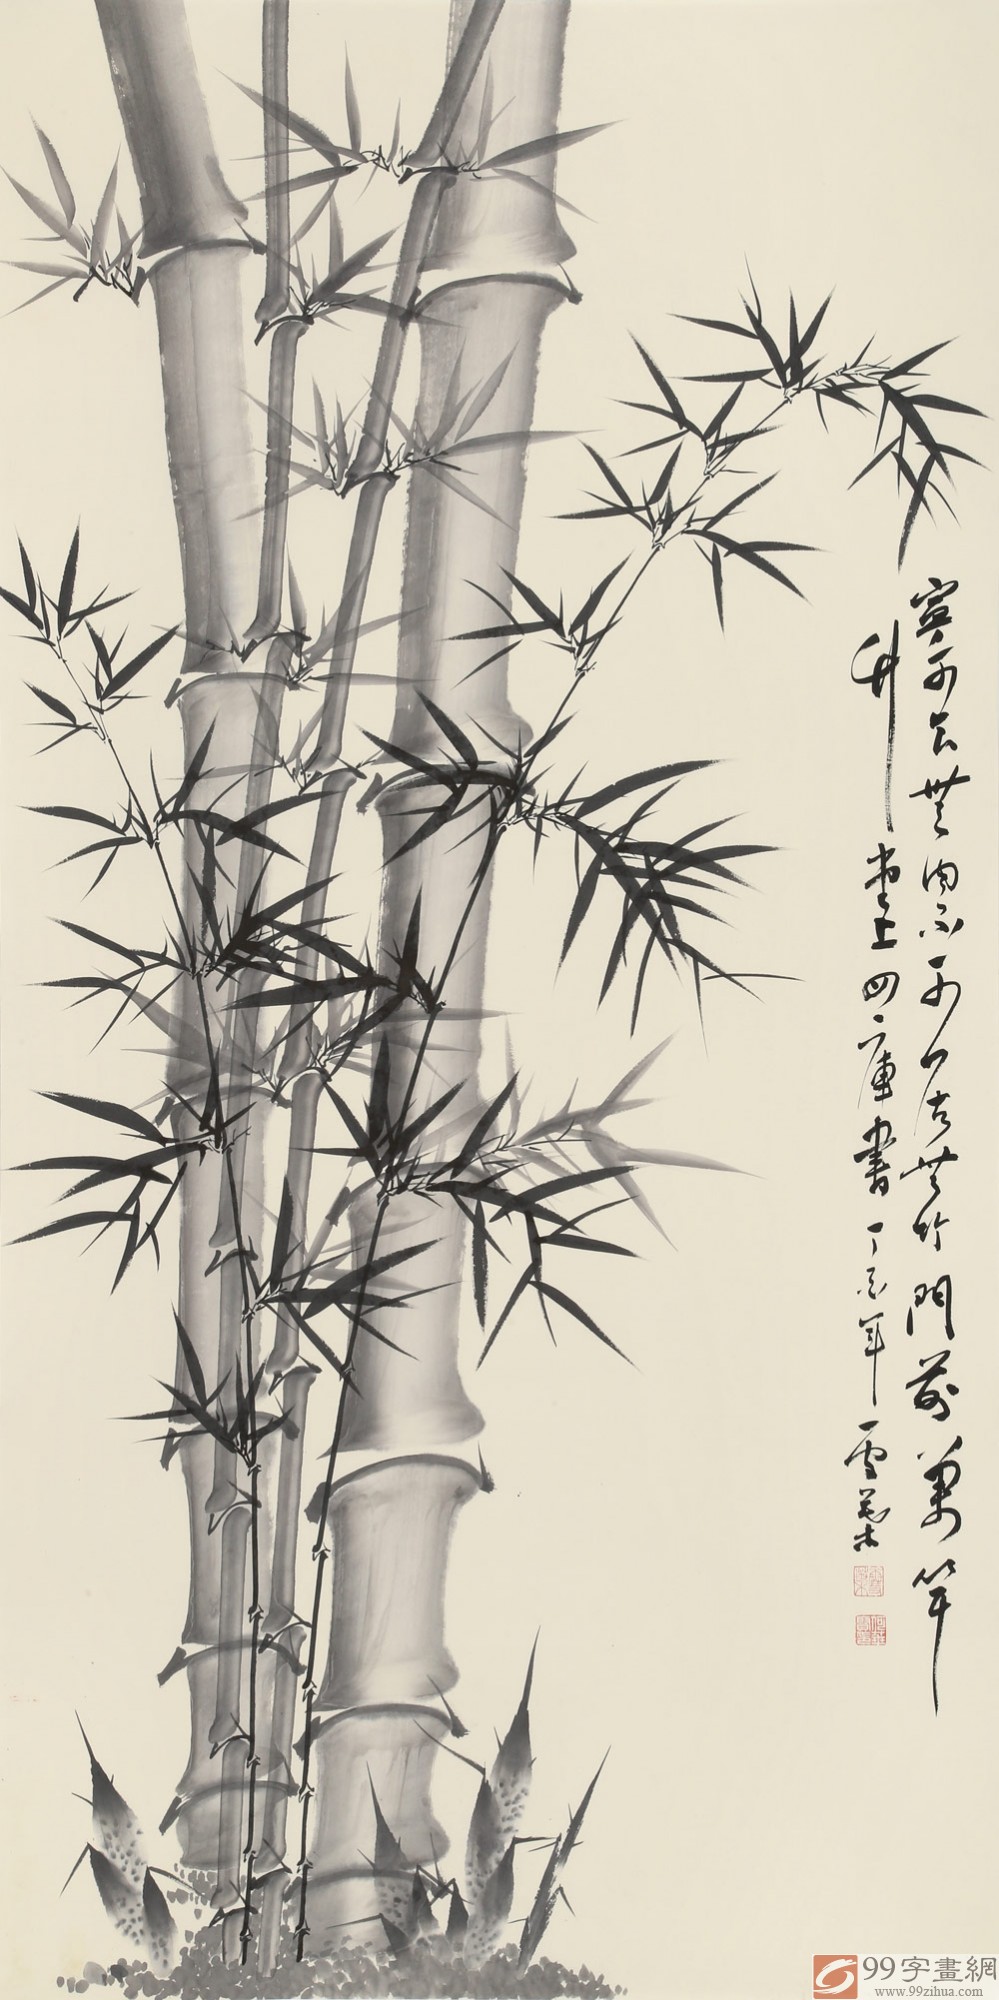 寧可食無肉不可以居無竹門前萬竿
竹堂上四庫書丁年雪
99字畫網
www.99zihua.com